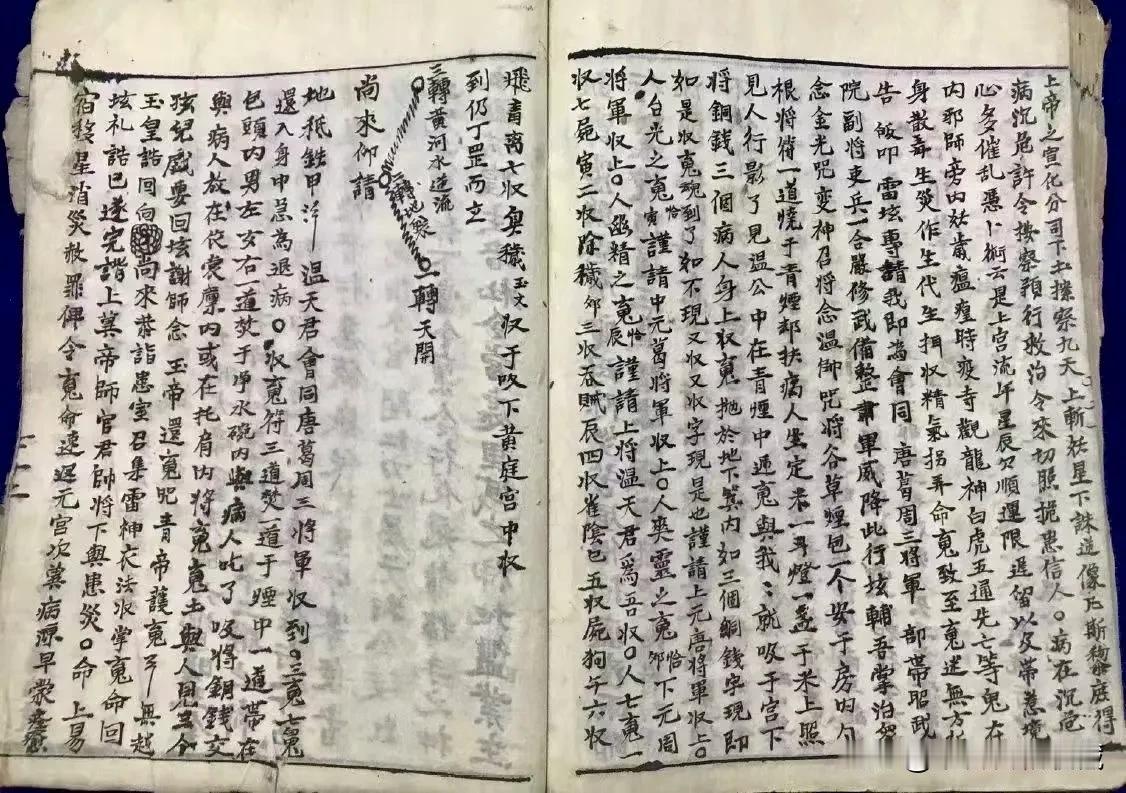 上帝之宣化分司下土摖察九天上斬妖星下誅造像凡斯黎庶得
病沉危許令按察預行救治令來切照抛患信人〇病在沉危
心多催乱憑卜術云是上宫流年星辰欠順運限遅留以及帶惹境
内邪師旁内妖歲瘟瘟時疫寺觀龍神白虎五通先亡等鬼在
身散毒生災作生代生抇収精氣拐弄命䰟致至䰟迷無方
告皈叩雷坛專請我即為會同唐葛周三將軍部帶昭武
院副將吏兵一合嚴修武備整肅軍威降此行坛輔吾掌治
念金光咒變神召將念温御咒將谷草煙包一个安于房内勾
根將符一道燒于青煙却扶病人生定米一斗燈一盞于米上照
見人行影了見温公中在青煙中逓䰟與我〻就吸于宫下
將銅錢三個病人身上収䰟抛於地下箕内如三個銅錢字現即
如是収䰟魂到了如不現又収又字現是也謹請上元唐將軍収上〇
人台光之䰟寅恰謹請中元葛將軍収上〇人爽靈之䰟卯恰下元周
將軍収上〇人幽精之䰟辰恰謹請上將温天君爲吾収〇人七䰟一
収七屍寅二収除穢卯三収吞賊辰四収雀陰巳五収屍狗午六収
飛畜离七収臭穢玉文収于吸下黄庭宫中収
到仍丁罡而立
三轉黄河水逆流
二轉地裂
一轉天開
尚來仰請
地秪鉄甲洋〻温天君會同唐葛周三將軍収到〇三䰟七䰟
還入身中急為退病〇収䰟符三道焚一道于煙中一道帶在
包頭内男左女右一道焚于净水碗内與病人吃了吸將銅錢交
與病人放在伩衾禀内或在托肩内將䰟䰟土與人見三令
孩兒感要回坛謝師念玉帝還䰟咒青帝護䰟〻無越
玉皇誥回向尚來恭詣患室召集雷神衣法収学䰟命回
坛礼誥已遂完諧上葉帝師官君帥將下與患災〇命上易
宿婺星消災救罪俾令䰟命速迟元宫次葉病源早蒙痊癒